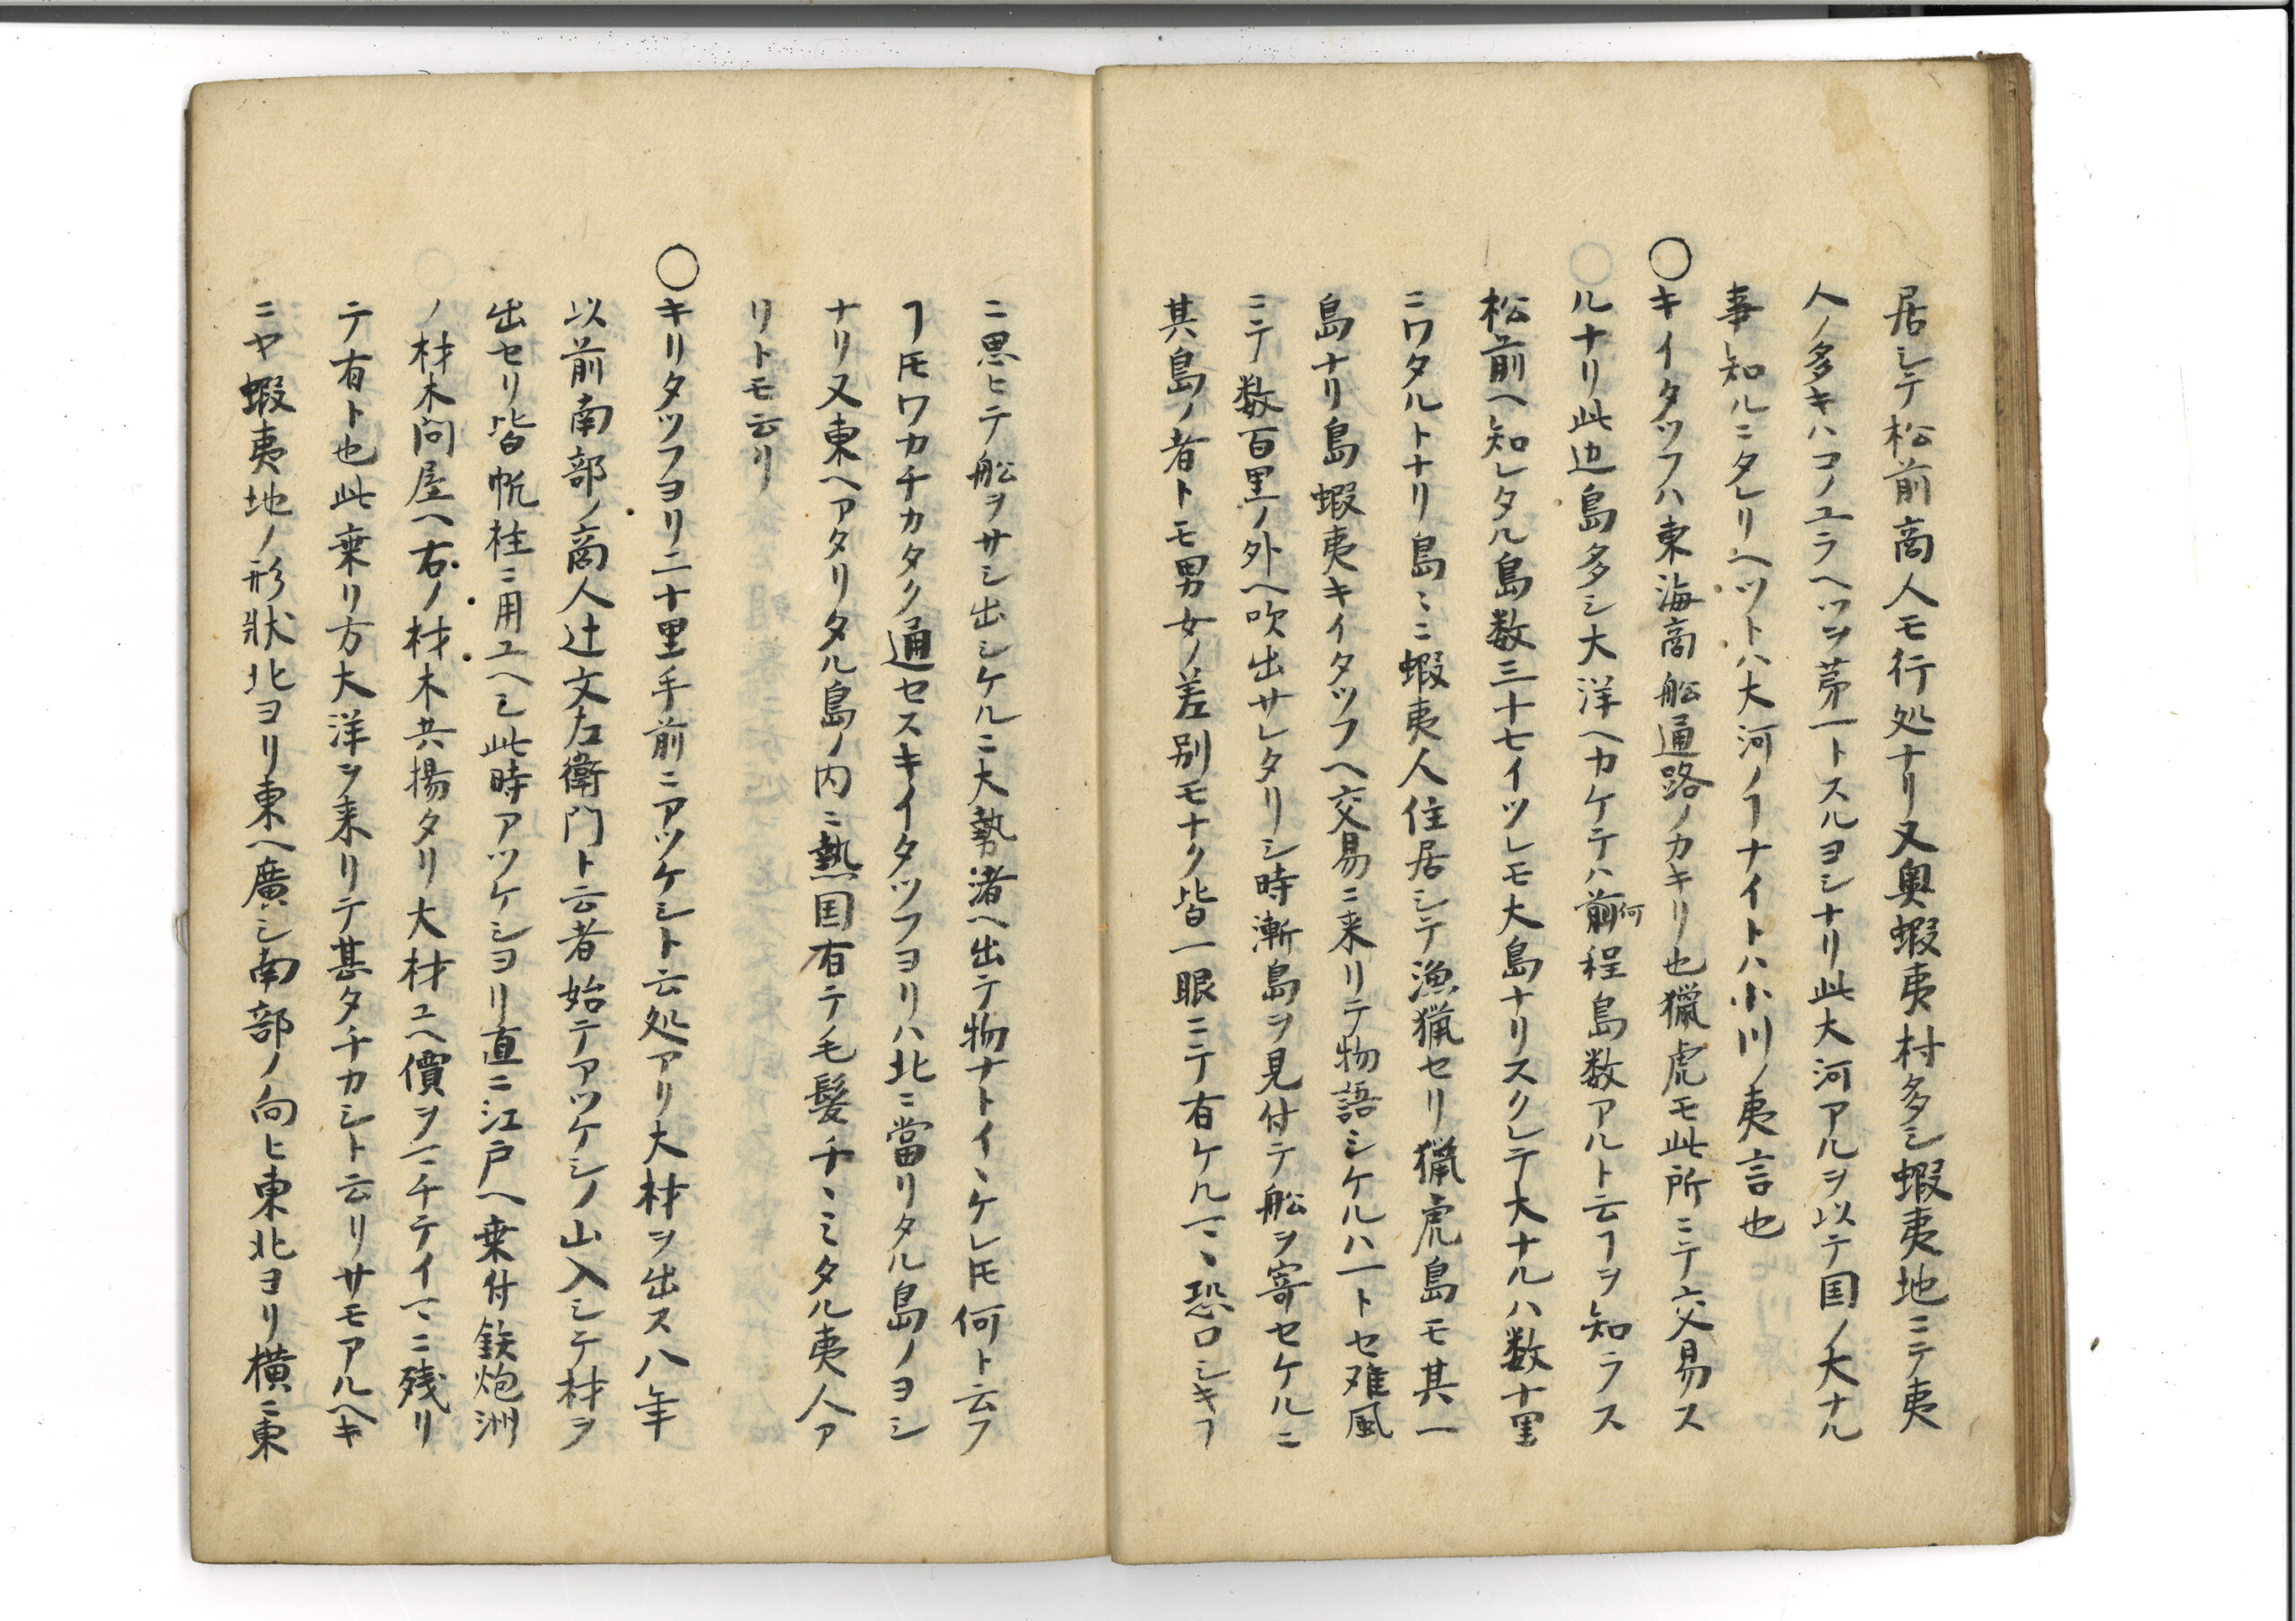 居シテ松前商人モ行処ナリ又奥蝦夷村多シ蝦夷地ニテ夷
人ノ多キハコノユラヘツヲ苐一トスルヨシナリ此大河アルヲ以テ国ノ大ナル
事知ルニタレリヘツトハ大河ノヿナイトハ小川ノ夷言也
〇キイタツフハ東海商船通路ノカキリ也獵虎モ此所ニテ交易ス
ルナリ此辺島多シ大洋ヘカケテハ前何程島数アルト云ヿヲ知ラス
松前ヘ知レタル島数三十七イツレモ大島ナリスクレテ大ナルハ数十里
ニワタルトナリ島ミニ蝦夷人住居シテ漁猟セリ猟虎島モ其一
島ナリ島蝦夷キイタツフヘ交易ニ来リテ物語シケルハ一トセ难風
ニテ数百里ノ外ヘ吹出サレタリシ時漸島ヲ見付テ船ヲ寄セケルニ
其島ノ者トモ男女ノ差別モナク皆一眼ニテ有ケルマヽ恐ロシキヿ
ニ思ヒテ船ヲサシ出シケルニ大勢渚ヘ出テ物ナトイヽケレ𪜈何ト云フ
ヿ𪜈ワカチカタク通セスキイタツフヨリハ北ニ當リタル島ノヨシ
ナリ又東ヘアタリタル島ノ内ニ熱国有テ毛髪チヽミタル夷人ア
リトモ云リ
〇キリタツフヨリ二十里手前ニアツケシト云処アリ大材ヲ出ス八年
以前南部ノ商人辻文左衛門ト云者始テアツケシノ山入シテ材ヲ
出セリ皆帆柱ニ用ユヘシ此時アツケシヨリ直ニ江戸ヘ乗付鉄炮洲
ノ材木問屋ヘ右ノ材木共揚タリ大材ユヘ價ヲマチテイマニ残リ
テ有ト也此乗リ方大洋ヲ来リテ甚タチカシト云リサモアルヘキ
ニヤ蝦夷地ノ形状北ヨリ東ヘ廣シ南部ノ向ヒ東北ヨリ横ニ東